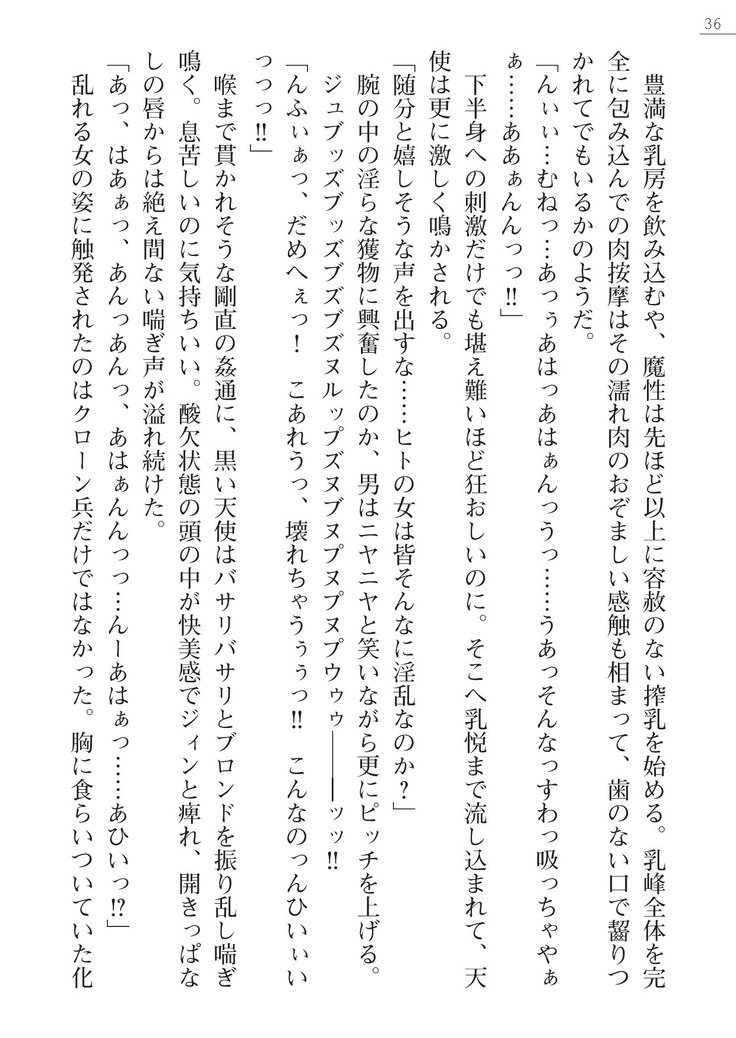 36
豊満な乳房を飲み込むや、魔性は先ほど以上に容赦のない搾乳を始める。乳峰全体を完
全に包み込んでの肉按摩はその濡れ肉のおぞましい感触も相まって、歯のない口で齧りつ
かれてでもいるかのようだ。
「んぃぃ…むねっ…あっぅあはっあはぁんっうっ……うあっそんなっすわっ吸っちゃやぁ
ぁ……ああぁんんっっ!!」
下半身への刺激だけでも堪え難いほど狂おしいのに。そこへ乳悦まで流し込まれて、天
使は更に激しく鳴かされる。
「随分と嬉しそうな声を出すな……ヒトの女は皆そんなに淫乱なのか?」
腕の中の淫らな獲物に興奮したのか、男はニヤニヤと笑いながら更にピッチを上げる。
ジュブッズブッズブズブズヌルップズヌブヌプヌプヌプウゥゥ――ッッ!!
「んふぃぁっ、だめへぇっ! こあれうっ、壊れちゃうぅぅっ!! こんなのっんひいぃい
っっっ!!」
喉まで貫かれそうな剛直の姦通に、黒い天使はバサリバサリとブロンドを振り乱し喘ぎ
鳴く。息苦しいのに気持ちいい。酸欠状態の頭の中が快美感でジィンと痺れ、開きっぱな
しの唇からは絶え間ない喘ぎ声が溢れ続けた。
「あっ、はあぁっ、あんっあんっ、あはぁんんっっ…んーあはぁっ……あひいっ!?」
乱れる女の姿に触発されたのはクローン兵だけではなかった。胸に食らいついていた化